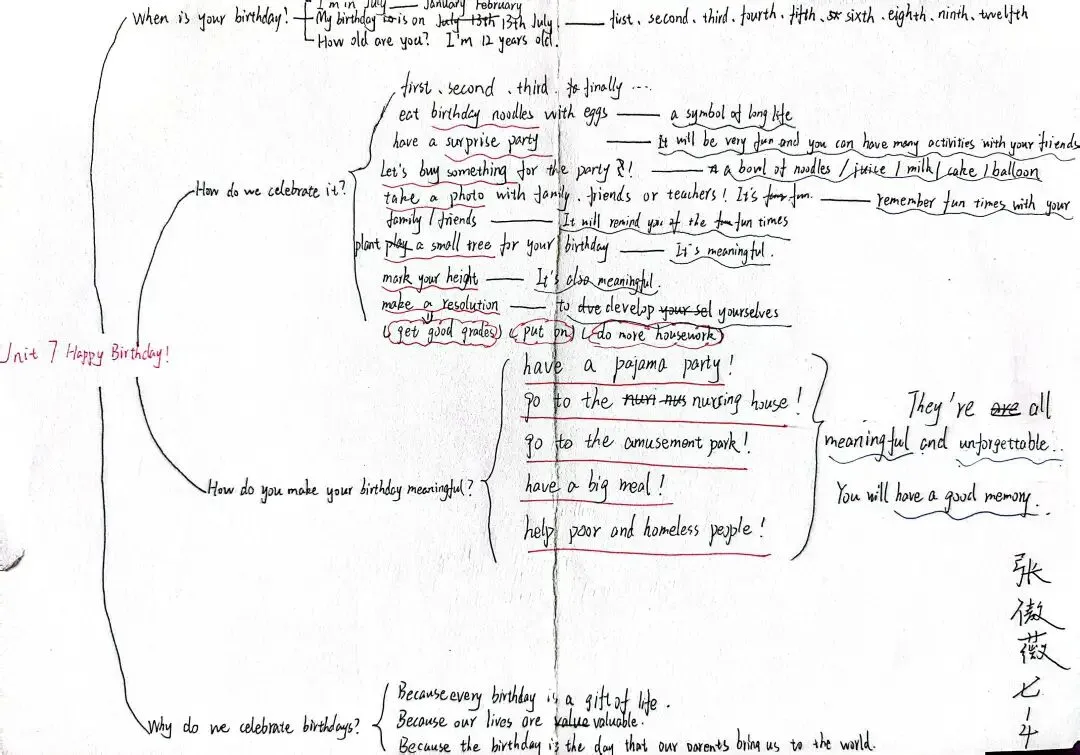 I'm in July — January February
When is your birthday? My birthday is on 13th July. — fist、second、third、fourth、fifth、sixth、eighth、ninth、twelfth
How old are you? I'm 12 years old.
first、second、third、finally ....
eat birthday noodles with eggs — a symbol of long life
have a surprise party — It will be very fun and you can have many activities with your friends
Let's buy something for the party! — a bowl of noodles / juice / milk / cake / balloon
How do we celebrate it?
take a photo with family、friends or teachers! It's fun. — remember fun times with your
family / friends — It will remind you of the fun times
plant a small tree for your birthday — It's meaningful.
mark your height — It's also meaningful.
make a resolution — to develop yourselves
get good grades put on do more housework
Unit 7 Happy Birthday!
have a pajama party!
go to the nursing house!
They're all
go to the amusement park!
meaningful and unforgettable..
How do you make your birthday meaningful?
have a big meal!
You will have a good memory..
help poor and homeless people!
张傲薇七-4
Because every birthday is a gift of life.
Why do we celebrate birthdays? Because our lives are valuable.
Because the birthday is the day that our parents bring us to the world.